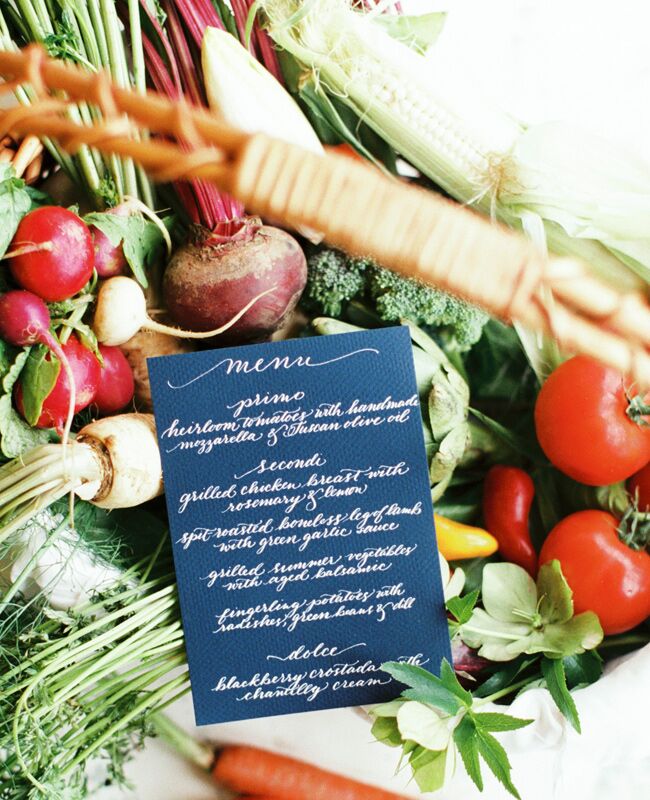 menu
primo
heirloom tomatoes with handmade
mozzarella & Tuscan olive oil
secondi
grilled chicken breast with
rosemary & lemon
spit roasted boneless leg of lamb
with green garlic sauce
grilled summer vegetables
with aged balsamic
fingerling potatoes with
radishes, green beans & dill
dolce
blackberry crostada with
chantilly cream